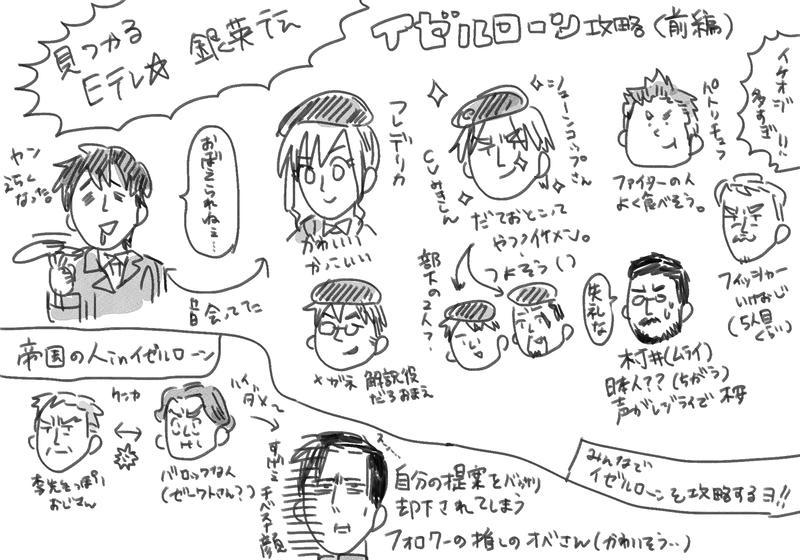 見つかる
Eテレ☆
銀英伝
イゼルローン攻略(前編)
イケオジ
多すぎ!!
ヤン
えらく
なった。
おぼえられねぇ…
フレデリカ
かわいい
かっこいい
昔会ってた
シェーンコップさん
CVみきしん
だておとこって
やつ?イケメン。
つよそう()
部下の2人?
パトリチェフ
ファイターの人
よく食べそう。
フィッシャー
いけおじ
(5人目
くらい)
失礼な
村井(ムライ)
日本人??(ちがう)
声がレジライで
メガネ 解説役
だろおまえ
帝国の人inイゼルローン
ケンカ
李先生っぽい
おじさん
バロックな人
(ゼークトさん?)
ハイ
ダメ〜
すげぇ
チベスナ顔
自分の提案をバッサリ
却下されてしまう
フォロワーの推しのオベさん(かわいそう…)
みんなで
イゼルローンを攻略するヨ!!